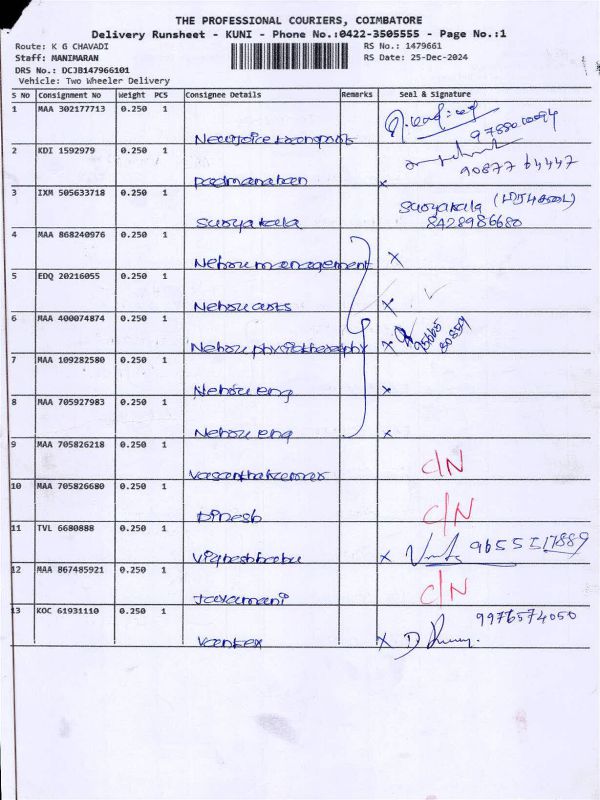 THE PROFESSIONAL COURIERS, COIMBATORE
Delivery Runsheet - KUNI - Phone No.:0422-3505555 - Page No.:1
Route: K G CHAVADI RS No.: 1479661
Staff: MANIMARAN RS Date: 25-Dec-2024
DRS No.: DCJB147966101
Vehicle: Two Wheeler Delivery
S No Consignment No Weight PCS Consignee Details Remarks Seal & Signature
1 MAA 302177713 0.250 1
2 KDI 1592979 0.250 1
Padmanaban x 90877 64447
3 IXM 505633718 0.250 1
Suryakala Suryakala
8428986680
4 MAA 868240976 0.250 1
Nehru management x
5 EDQ 20216055 0.250 1
Nehru arts x
6 MAA 400074874 0.250 1
Nehru physiotheraphy x
7 MAA 109282580 0.250 1
Nehru eng x
8 MAA 705927983 0.250 1
Nehru eng x
9 MAA 705826218 0.250 1
Vasanthakumar C/N
10 MAA 705826680 0.250 1
Dinesh C/N
11 TVL 6680888 0.250 1
Vigneshbrabu x
12 MAA 867485921 0.250 1
Jayamani C/N
13 KOC 61931110 0.250 1 9976574050
Vantex x